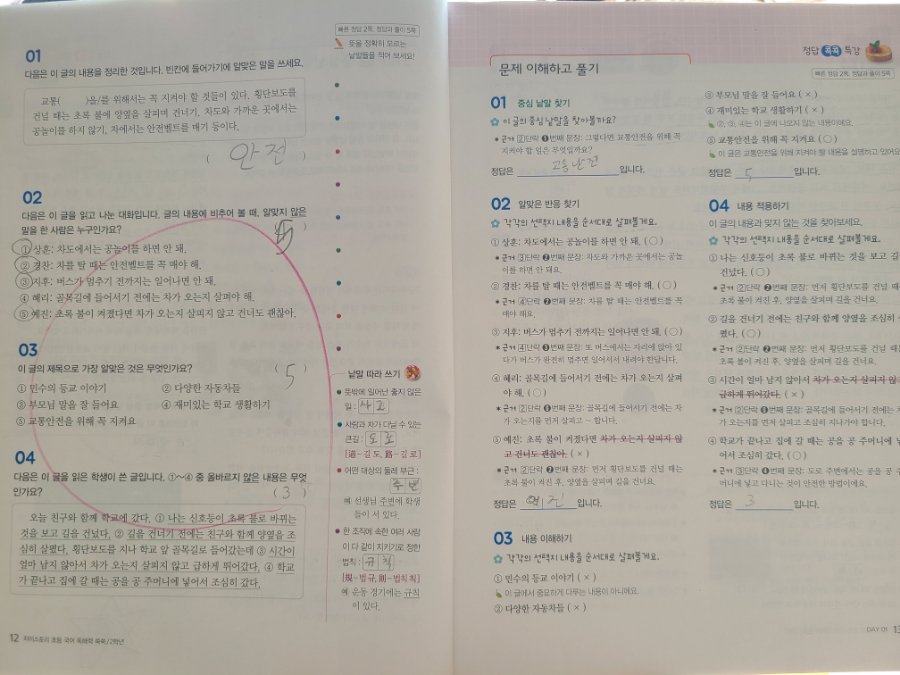 빠른 정답 2쪽, 정답과 풀이 5쪽
01
다음은 이 글의 내용을 정리한 것입니다. 빈칸에 들어가기에 알맞은 말을 쓰세요.
교통( )을/를 위해서는 꼭 지켜야 할 것들이 있다. 횡단보도를
건널 때는 초록 불에 양옆을 살피며 건너기, 차도와 가까운 곳에서는
공놀이를 하지 않기, 차에서는 안전벨트를 매기 등이다.
( 안전 )
02
다음은 이 글을 읽고 나눈 대화입니다. 글의 내용에 비추어 볼 때, 알맞지 않은
말을 한 사람은 누구인가요? ( 5 )
① 상훈: 차도에서는 공놀이를 하면 안 돼.
② 경찬: 차를 탈 때는 안전벨트를 꼭 매야 해.
③ 지후: 버스가 멈추기 전까지는 일어나면 안 돼.
④ 혜리: 골목길에 들어서기 전에는 차가 오는지 살펴야 해.
⑤ 예진: 초록 불이 켜졌다면 차가 오는지 살피지 않고 건너도 괜찮아.
03
이 글의 제목으로 가장 알맞은 것은 무엇인가요? ( 5 )
① 민수의 등교 이야기 ② 다양한 자동차들
③ 부모님 말을 잘 들어요 ④ 재미있는 학교 생활하기
⑤ 교통안전을 위해 꼭 지켜요
04
다음은 이 글을 읽은 학생이 쓴 글입니다. ①~④ 중 올바르지 않은 내용은 무엇
인가요? ( 3 )
오늘 친구와 함께 학교에 갔다. ① 나는 신호등이 초록 불로 바뀌는
것을 보고 길을 건넜다. ② 길을 건너기 전에는 친구와 함께 양옆을 조
심히 살폈다. 횡단보도를 지나 학교 앞 골목길로 들어갔는데 ③ 시간이
얼마 남지 않아서 차가 오는지 살피지 않고 급하게 뛰어갔다. ④ 학교
가 끝나고 집에 갈 때는 공을 공 주머니에 넣어서 조심히 갔다.
12 자이스토리 초등 국어 독해력 쑥쑥/2학년
뜻을 정확히 모르는
낱말들을 적어 보세요!
낱말 따라 쓰기
뜻밖에 일어난 좋지 않은
일 : 사고
사람과 차가 다닐 수 있는
큰길 : 도로
[道-길 도, 路-길 로]
어떤 대상의 둘레 부근 :
주변
예 선생님 주변에 학생
들이 서 있다.
한 조직에 속한 여러 사람
이 다 같이 지키기로 정한
법칙 : 규칙
[規-법 규, 則-법칙 칙]
예 운동 경기에는 규칙
이 있다.
정답 콕콕 특강
빠른 정답 2쪽, 정답과 풀이 5쪽
문제 이해하고 풀기
01 중심 낱말 찾기
이 글의 중심 낱말을 찾아볼까요?
근거 2단락 1번째 문장: 그렇다면 교통안전을 위해 꼭
지켜야 할 일은 무엇일까요?
정답은 입니다.
02 알맞은 반응 찾기
각각의 선택지 내용을 순서대로 살펴볼게요.
① 상훈: 차도에서는 공놀이를 하면 안 돼. (○)
근거 3단락 번째 문장: 차도와 가까운 곳에서는 공놀
이를 하면 안 돼요.
② 경찬: 차를 탈 때는 안전벨트를 꼭 매야 해. (○)
근거 4단락 2번째 문장: 차를 탈 때는 안전벨트를 꼭
매야 해요.
③ 지후: 버스가 멈추기 전까지는 일어나면 안 돼. (○)
근거 4단락 3번째 문장: 또 버스에서는 자리에 앉아 있
다가 버스가 완전히 멈추면 일어서서 내려야 한답니다.
④ 혜리: 골목길에 들어서기 전에는 차가 오는지 살펴
야 해. (○)
근거 2단락 번째 문장: 골목길에 들어서기 전에는 차
가 오는지를 먼저 살피고 ~ 합니다.
⑤ 예진: 초록 불이 켜졌다면 차가 오는지 살피지 않
고 건너도 괜찮아. (×)
근거 2단락 2번째 문장: 먼저 횡단보도를 건널 때는
초록 불이 켜진 후, 양옆을 살피며 건너요.
정답은 예진 입니다.
03 내용 이해하기
각각의 선택지 내용을 순서대로 살펴볼게요.
① 민수의 등교 이야기 (×)
이 글에서 중요하게 다루는 내용이 아니에요.
② 다양한 자동차들 (×)
③ 부모님 말을 잘 들어요 (×)
④ 재미있는 학교 생활하기 (×)
②, ③, ④는 이 글에 나오지 않는 내용이에요.
⑤ 교통안전을 위해 꼭 지켜요 (○)
이 글은 교통안전을 위해 지켜야 할 내용을 설명하고 있어요
정답은 5 입니다.
04 내용 적용하기
이 글의 내용과 맞지 않는 것을 찾아보세요.
각각의 선택지 내용을 순서대로 살펴볼게요.
① 나는 신호등이 초록 불로 바뀌는 것을 보고 길
건넜다. (○)
근거 2단락 2번째 문장: 먼저 횡단보도를 건널 때
초록 불이 켜진 후, 양옆을 살피며 건너요.
② 길을 건너기 전에는 친구와 함께 양옆을 조심히
폈다. (○)
근거 2단락 2번째 문장: 먼저 횡단보도를 건널 때는
초록 불이 켜진 후, 양옆을 살피며 건너요.
③ 시간이 얼마 남지 않아서 차가 오는지 살피지 않
급하게 뛰어갔다. (×)
근거 2단락 번째 문장: 골목길에 들어서기 전에는 차
가 오는지를 먼저 살피고 조심히 지나가야 합니다.
④ 학교가 끝나고 집에 갈 때는 공을 공 주머니에 넣
어서 조심히 갔다. (○)
근거 3단락 번째 문장: 도로 주변에서는 공을 공 주
머니에 넣고 다니는 것이 안전한 방법이에요.
정답은 3 입니다.
DAY 01 13